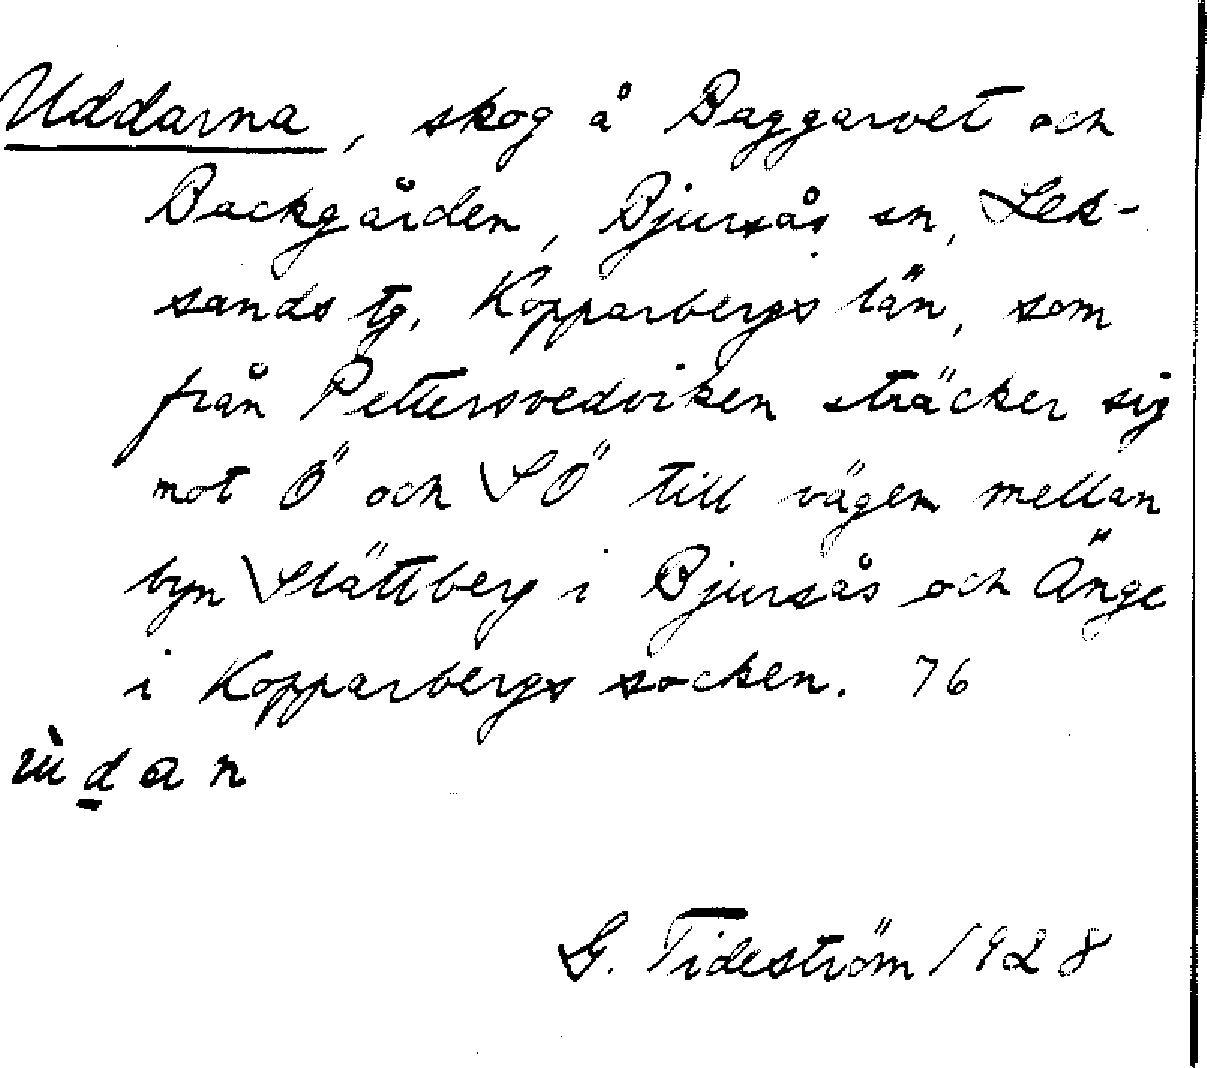 Uddarna, skog å Baggarvet och
Backgården, Bjursås sn, Lek-
sands tg. Kopparbergs län, som
från Pettersvedviken sträcker sig
mot Ö och SÖ till vägen mellan
byn Slättberg i Bjursås och Änge
i Kopparbergs socken. 76
G. Tideström 1928